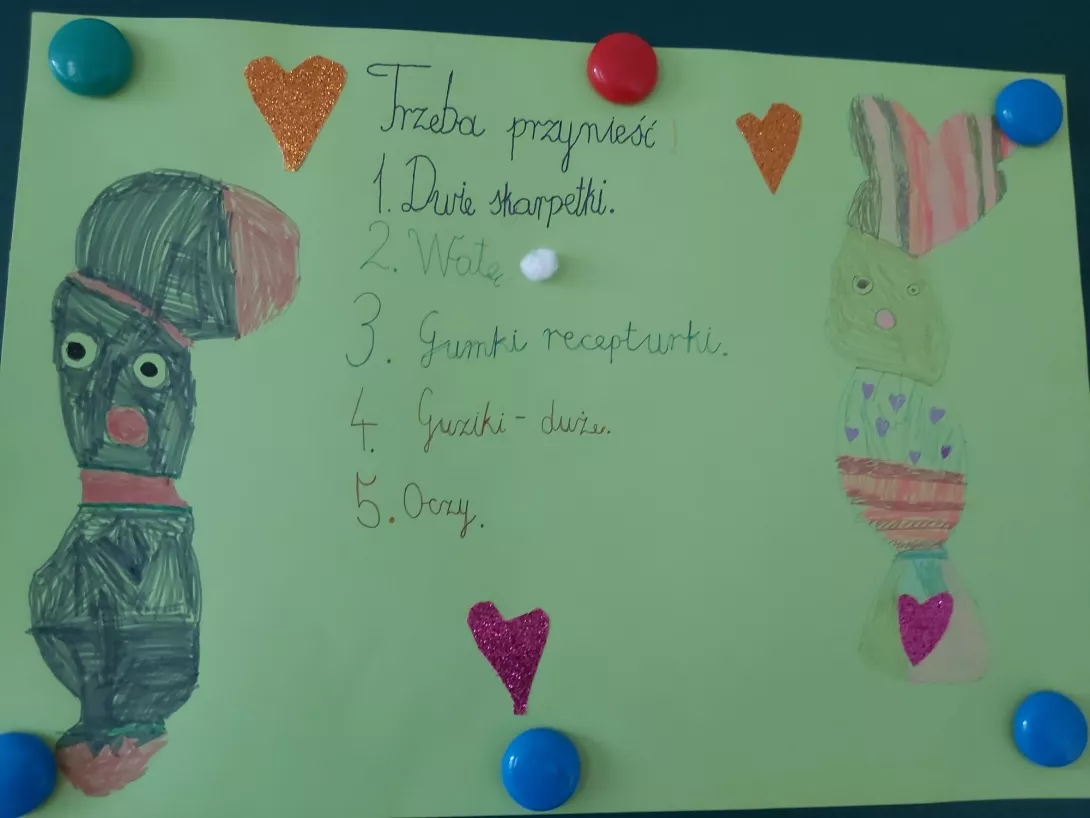 Trzeba przynieść
1. Dwie skarpetki.
2. Watę
3. Gumki recepturki.
4. Guziki - duże.
5. Oczy.